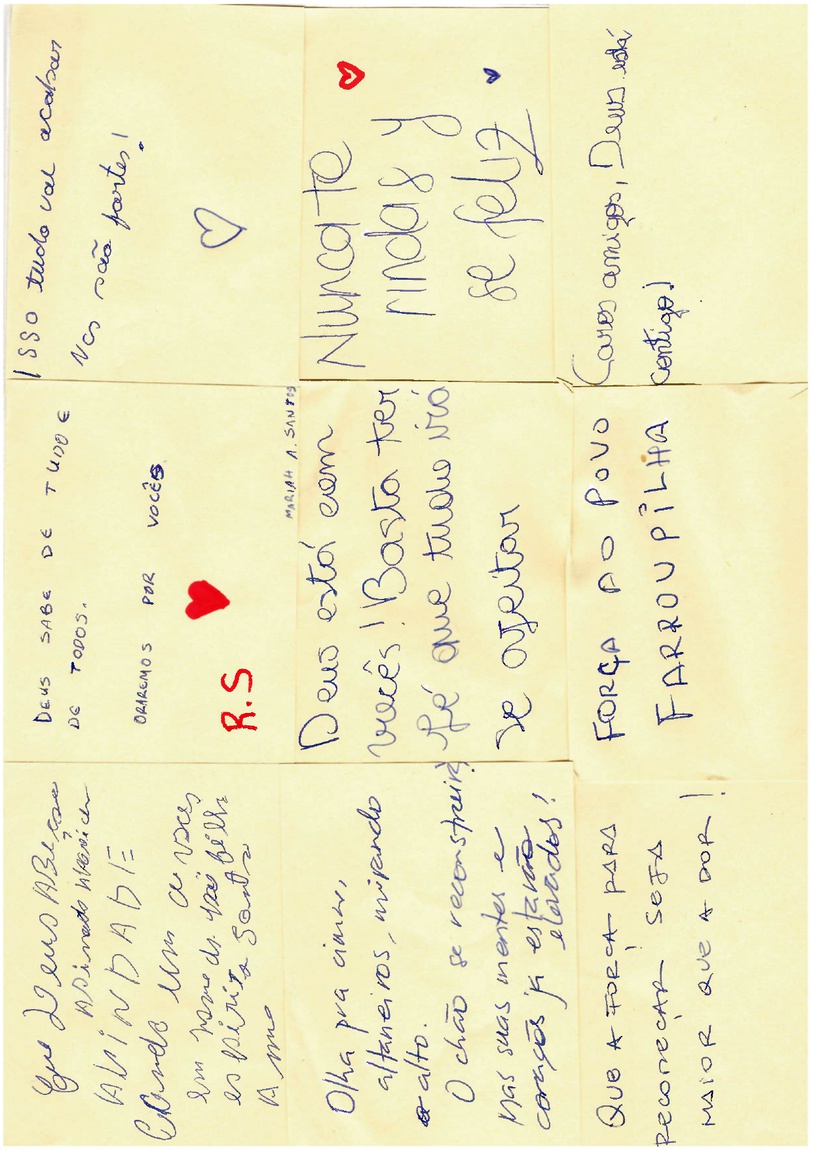 Que Deus
CADA um de voces
em nome do pai filho
espirito Santo
DEUS SABE DE TUDO E
DE TODOS.
ORAREMOS POR VOCÊS
R.S
Isso tudo vai acabar
Vcs são fortes!
Olha pra cima,
altaneiros, mirando
o alto.
O chão se reconstruirá
Mas suas mentes e
corações já estarão
elevados!
MARIAH A. SANTOS
Deus está com
vocês! Basta ter
fé que tudo irá
se ajeitar
Nunca te
rindas y
se feliz
QUE A FORÇA PARA
RECOMEÇAR SEJA
MAIOR QUE A DOR!
FORÇA AO POVO
FARROUPILHA
Caros amigos, Deus está
contigo!